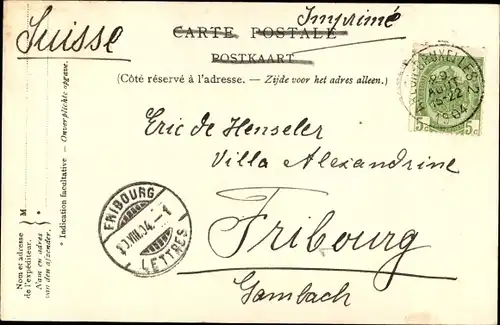 Suisse
Imprimé
CARTE POSTALE
POSTKAART
(Côté réservé à l'adresse. — Zijde voor het adres alleen.)
BRUXELLES 2
AOUT
15-22
1904
5c 5c
Eric de Henseler
Villa Alexandrine
Fribourg
Gambach
FRIBOURG
VIII.04.-1
LETTRES
* Indication facultative — Onverplichte opgave.
M *
Nom et adresse
de l'expéditeur.
Naam en adres
van den afzender.